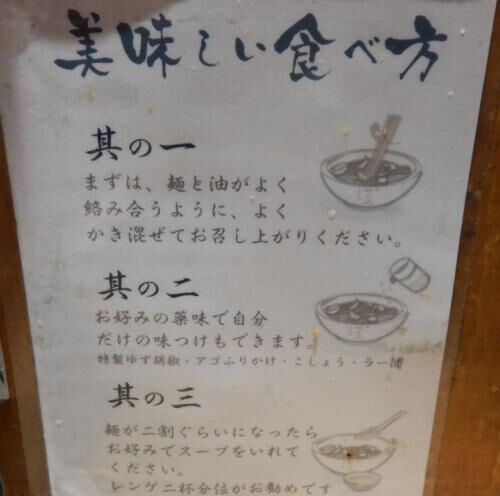 美味しい食べ方
其の一
まずは、麺と油がよく
絡み合うように、よく
かき混ぜてお召し上がりください。
其の二
お好みの薬味で自分
だけの味つけもできます。
特製ゆず胡椒・アゴふりかけ・こしょう・ラー油
其の三
麺が二割ぐらいになったら
お好みでスープをいれて
ください。
レンゲ二杯分位がお勧めです